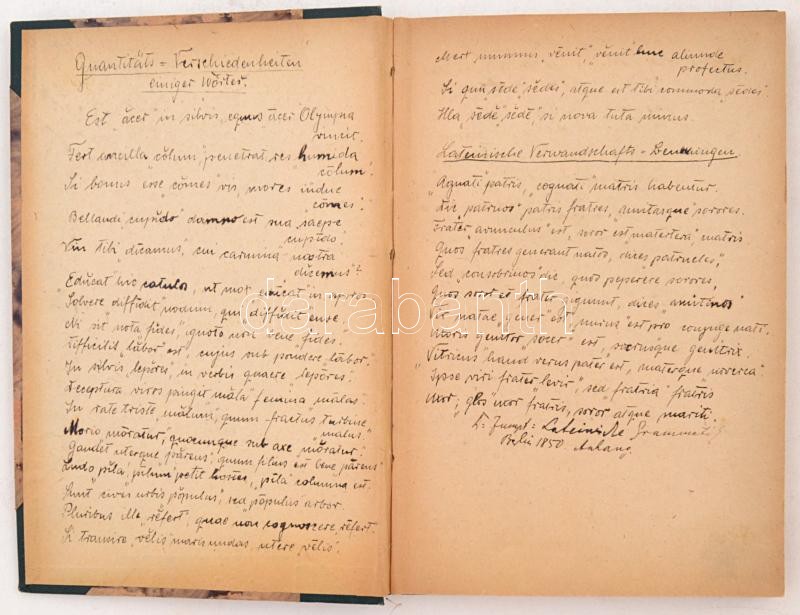 Quantitäts=Verschiedenheiten
einiger Wörter.
Est „ācer" in silvis, equus ācer Olympia
vincit.
Fert ancilla „cōlum", penetrat res humida
„cōlum".
Si bonus esse „cōmes" vis, mores indue
„cōmes".
Bellandi „cupīdo" damno est sua saepe
„cupīdo".
Vin tibi dīcamus", cui carmina nostra
dicemus"?
„Edŭcat" hic catulos, ut mox edūcat" in apros
Solvere diffidit" nodum, qui „diffīdit" ense
Ni sit „nota fides, ignoto non bene fides.
Difficilis „lābor" est, cujus sub pondere „lābor".
In silvis „lepŏres", in verbis quaere „lepōres".
Acceptura viros pingit „māla" femina mālas.
In rate triste „mālum", quum fractus turbine
„malus".
Morio „mŏratur", quocunque sub axe „mŏratur".
Gaudet uterque „părens", quum filius est bene „părens"
Ludo pilā; „pīlum" petit hostes, „pīla" columna est.
Sunt „cives" urbis pŏpulus", sed „pōpulus" arbor.
Pluribus ille „rĕfert", quae non cognoscere „rēfert".
Si transire „vĕlis" maris undas, utere „vēlis".
Merx nummus „vēnit", „vĕnit" huc aliunde
profectus.
Si qua „sēde" „sĕdes", atque est tibi commoda „sēdes".
Illa „sĕdē" „sēdē" si nova tuta minus.
Lateinische Verwandschafts=Benennungen
„Agnati" patris, „cognati" matris habentur.
Dic „patruos" patris fratres, amitasque sorores.
Frater „avunculus" est, soror est „matertera" matris
Quos fratres generant natos, dices „patrueles",
Sed „consobrinos" dic, quos peperere sorores,
Quos soror et frater gignunt, dices „amitinos"
Vir natae „gener" est, „nurus" est pro conjuge nati.
Uxoris genitor „socer" est, socrusque genitrix.
„Vitricus" haud verus pater est, materque noverca".
Ipse viri frater „levir", sed „fratria" fratris
Uxor; „glos" uxor fratris, soror atque mariti.
Zumpt: Lateinische Grammatik
Berlin 1850. Anhang.
darabanth